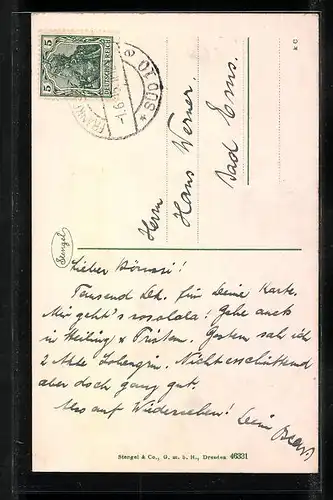 5
5
DEUTSCHES REICH
SÜD 10
Herrn
Hans Werner
Bad Ems.
Stengel
Lieber
Tausend Dk. für Deine Karte.
Mir geht's rosalala! Gehe auch
in & Tristan. Gestern sah ich
2 Akte Lohengrin. Nicht erschütternd
aber doch ganz gut.
Also auf Wiedersehen! Dein
Stengel & Co., G. m. b. H., Dresden 46331